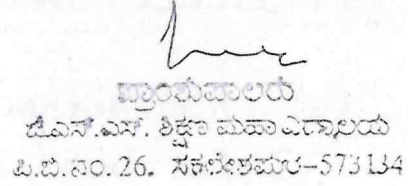 ಪ್ರಾಂಶುಪಾಲರು
ಜೆ.ಎಸ್.ಎಸ್. ಶಿಕ್ಷಣ ಮಹಾವಿದ್ಯಾಲಯ
ಪಿ.ಬಿ.ನಂ. 26. ಸಕಲೇಶಪುರ-573134